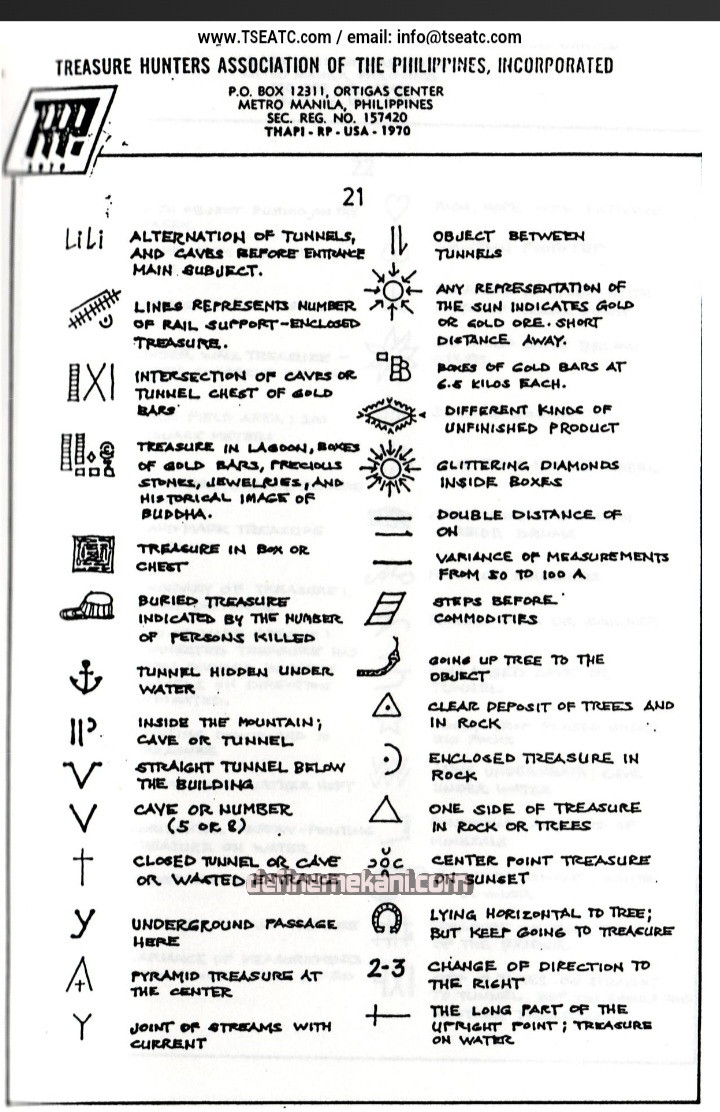 www.TSEATC.com / email: info@tseatc.com
TREASURE HUNTERS ASSOCIATION OF THE PHILIPPINES, INCORPORATED
P.O. BOX 12311, ORTIGAS CENTER
METRO MANILA, PHILIPPINES
SEC. REG. NO. 157420
THAPI - RP - USA - 1970
21
LiLi
ALTERNATION OF TUNNELS,
AND CAVES BEFORE ENTRANCE
MAIN SUBJECT.
LINES REPRESENTS NUMBER
OF RAIL SUPPORT-ENCLOSED
TREASURE.
INTERSECTION OF CAVES OR
TUNNEL CHEST OF GOLD
BARS
TREASURE IN LAGOON, BOXES
OF GOLD BARS, PRECIOUS
STONES, JEWELRIES, AND
HISTORICAL IMAGE OF
BUDDHA.
TREASURE IN BOX OR
CHEST
BURIED TREASURE
INDICATED BY THE NUMBER
OF PERSONS KILLED
TUNNEL HIDDEN UNDER
WATER
INSIDE THE MOUNTAIN;
CAVE OR TUNNEL
STRAIGHT TUNNEL BELOW
THE BUILDING
V
CAVE OR NUMBER
(5 OR 8)
CLOSED TUNNEL OR CAVE
OR WASTED ENTRANCE
y
UNDERGROUND PASSAGE
HERE
PYRAMID TREASURE AT
THE CENTER
Y
JOINT OF STREAMS WITH
CURRENT
OBJECT BETWEEN
TUNNELS
ANY REPRESENTATION OF
THE SUN INDICATES GOLD
OR GOLD ORE. SHORT
DISTANCE AWAY.
B
BOXES OF GOLD BARS AT
6.5 KILOS EACH.
DIFFERENT KINDS OF
UNFINISHED PRODUCT
GLITTERING DIAMONDS
INSIDE BOXES
DOUBLE DISTANCE OF
ON
VARIANCE OF MEASUREMENTS
FROM 50 TO 100 A
STEPS BEFORE
COMMODITIES
GOING UP TREE TO THE
OBJECT
CLEAR DEPOSIT OF TREES AND
IN ROCK
ENCLOSED TREASURE IN
ROCK
ONE SIDE OF TREASURE
IN ROCK OR TREES
CENTER POINT TREASURE
ON SUNSET
LYING HORIZONTAL TO TREE;
BUT KEEP GOING TO TREASURE
2-3
CHANGE OF DIRECTION TO
THE RIGHT
THE LONG PART OF THE
UPRIGHT POINT; TREASURE
ON WATER
definemekani.com